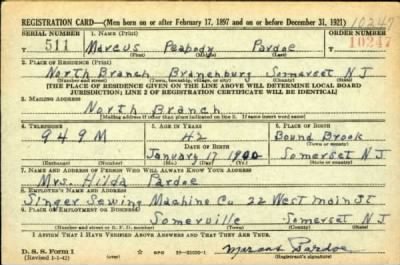 REGISTRATION CARD—(Men born on or after February 17, 1897 and on or before December 31, 1921)
10247
SERIAL NUMBER
1. NAME (Print)
ORDER NUMBER
511
Marcus Peabody Pardoe
10247
(First) (Middle) (Last)
2. PLACE OF RESIDENCE (Print)
North Branch Branchburg Somerset N J
(Number and street) (Town, township, village, or city) (County) (State)
[THE PLACE OF RESIDENCE GIVEN ON THE LINE ABOVE WILL DETERMINE LOCAL BOARD
JURISDICTION; LINE 2 OF REGISTRATION CERTIFICATE WILL BE IDENTICAL]
3. MAILING ADDRESS
North Branch
[Mailing address if other than place indicated on line 2. If same insert word same]
4. TELEPHONE
5. AGE IN YEARS
6. PLACE OF BIRTH
949M
42
Bound Brook
DATE OF BIRTH
(Town or county)
January 17 1900
Somerset N J
(Exchange) (Number)
(Mo.) (Day) (Yr.)
(State or country)
7. NAME AND ADDRESS OF PERSON WHO WILL ALWAYS KNOW YOUR ADDRESS
Mrs. Hilda Pardoe
8. EMPLOYER'S NAME AND ADDRESS
Singer Sewing Machine Co 22 West Main St
9. PLACE OF EMPLOYMENT OR BUSINESS
Somerville Somerset N J
(Number and street or R. F. D. number) (Town) (County) (State)
I AFFIRM THAT I HAVE VERIFIED ABOVE ANSWERS AND THAT THEY ARE TRUE.
D. S. S. Form 1
(Revised 1-1-42)
GPO
Marcus Pardoe
(Registrant's signature)